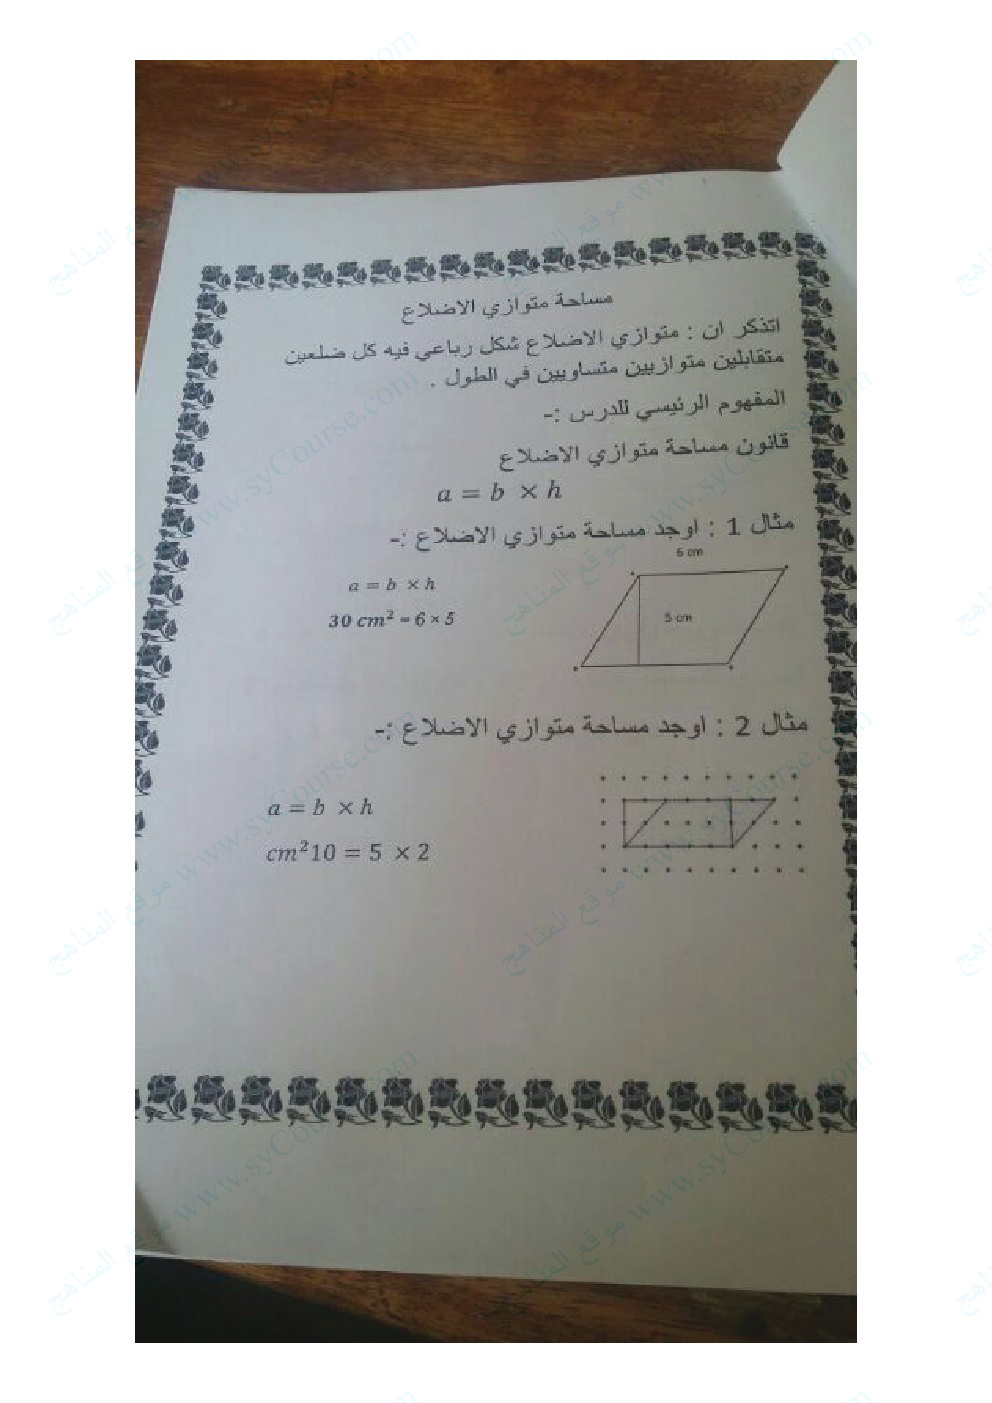 مساحة متوازي الاضلاع
اتذكر ان : متوازي الاضلاع شكل رباعي فيه كل ضلعين
متقابلين متوازيين متساويين في الطول .
المفهوم الرئيسي للدرس :-
قانون مساحة متوازي الاضلاع
a = b × h
مثال 1 : اوجد مساحة متوازي الاضلاع :-
6 cm
a = b × h
5 cm
30 cm² = 6 × 5
مثال 2 : اوجد مساحة متوازي الاضلاع :-
a = b × h
cm²10 = 5 × 2
موقع المناهج www.syCourse.com